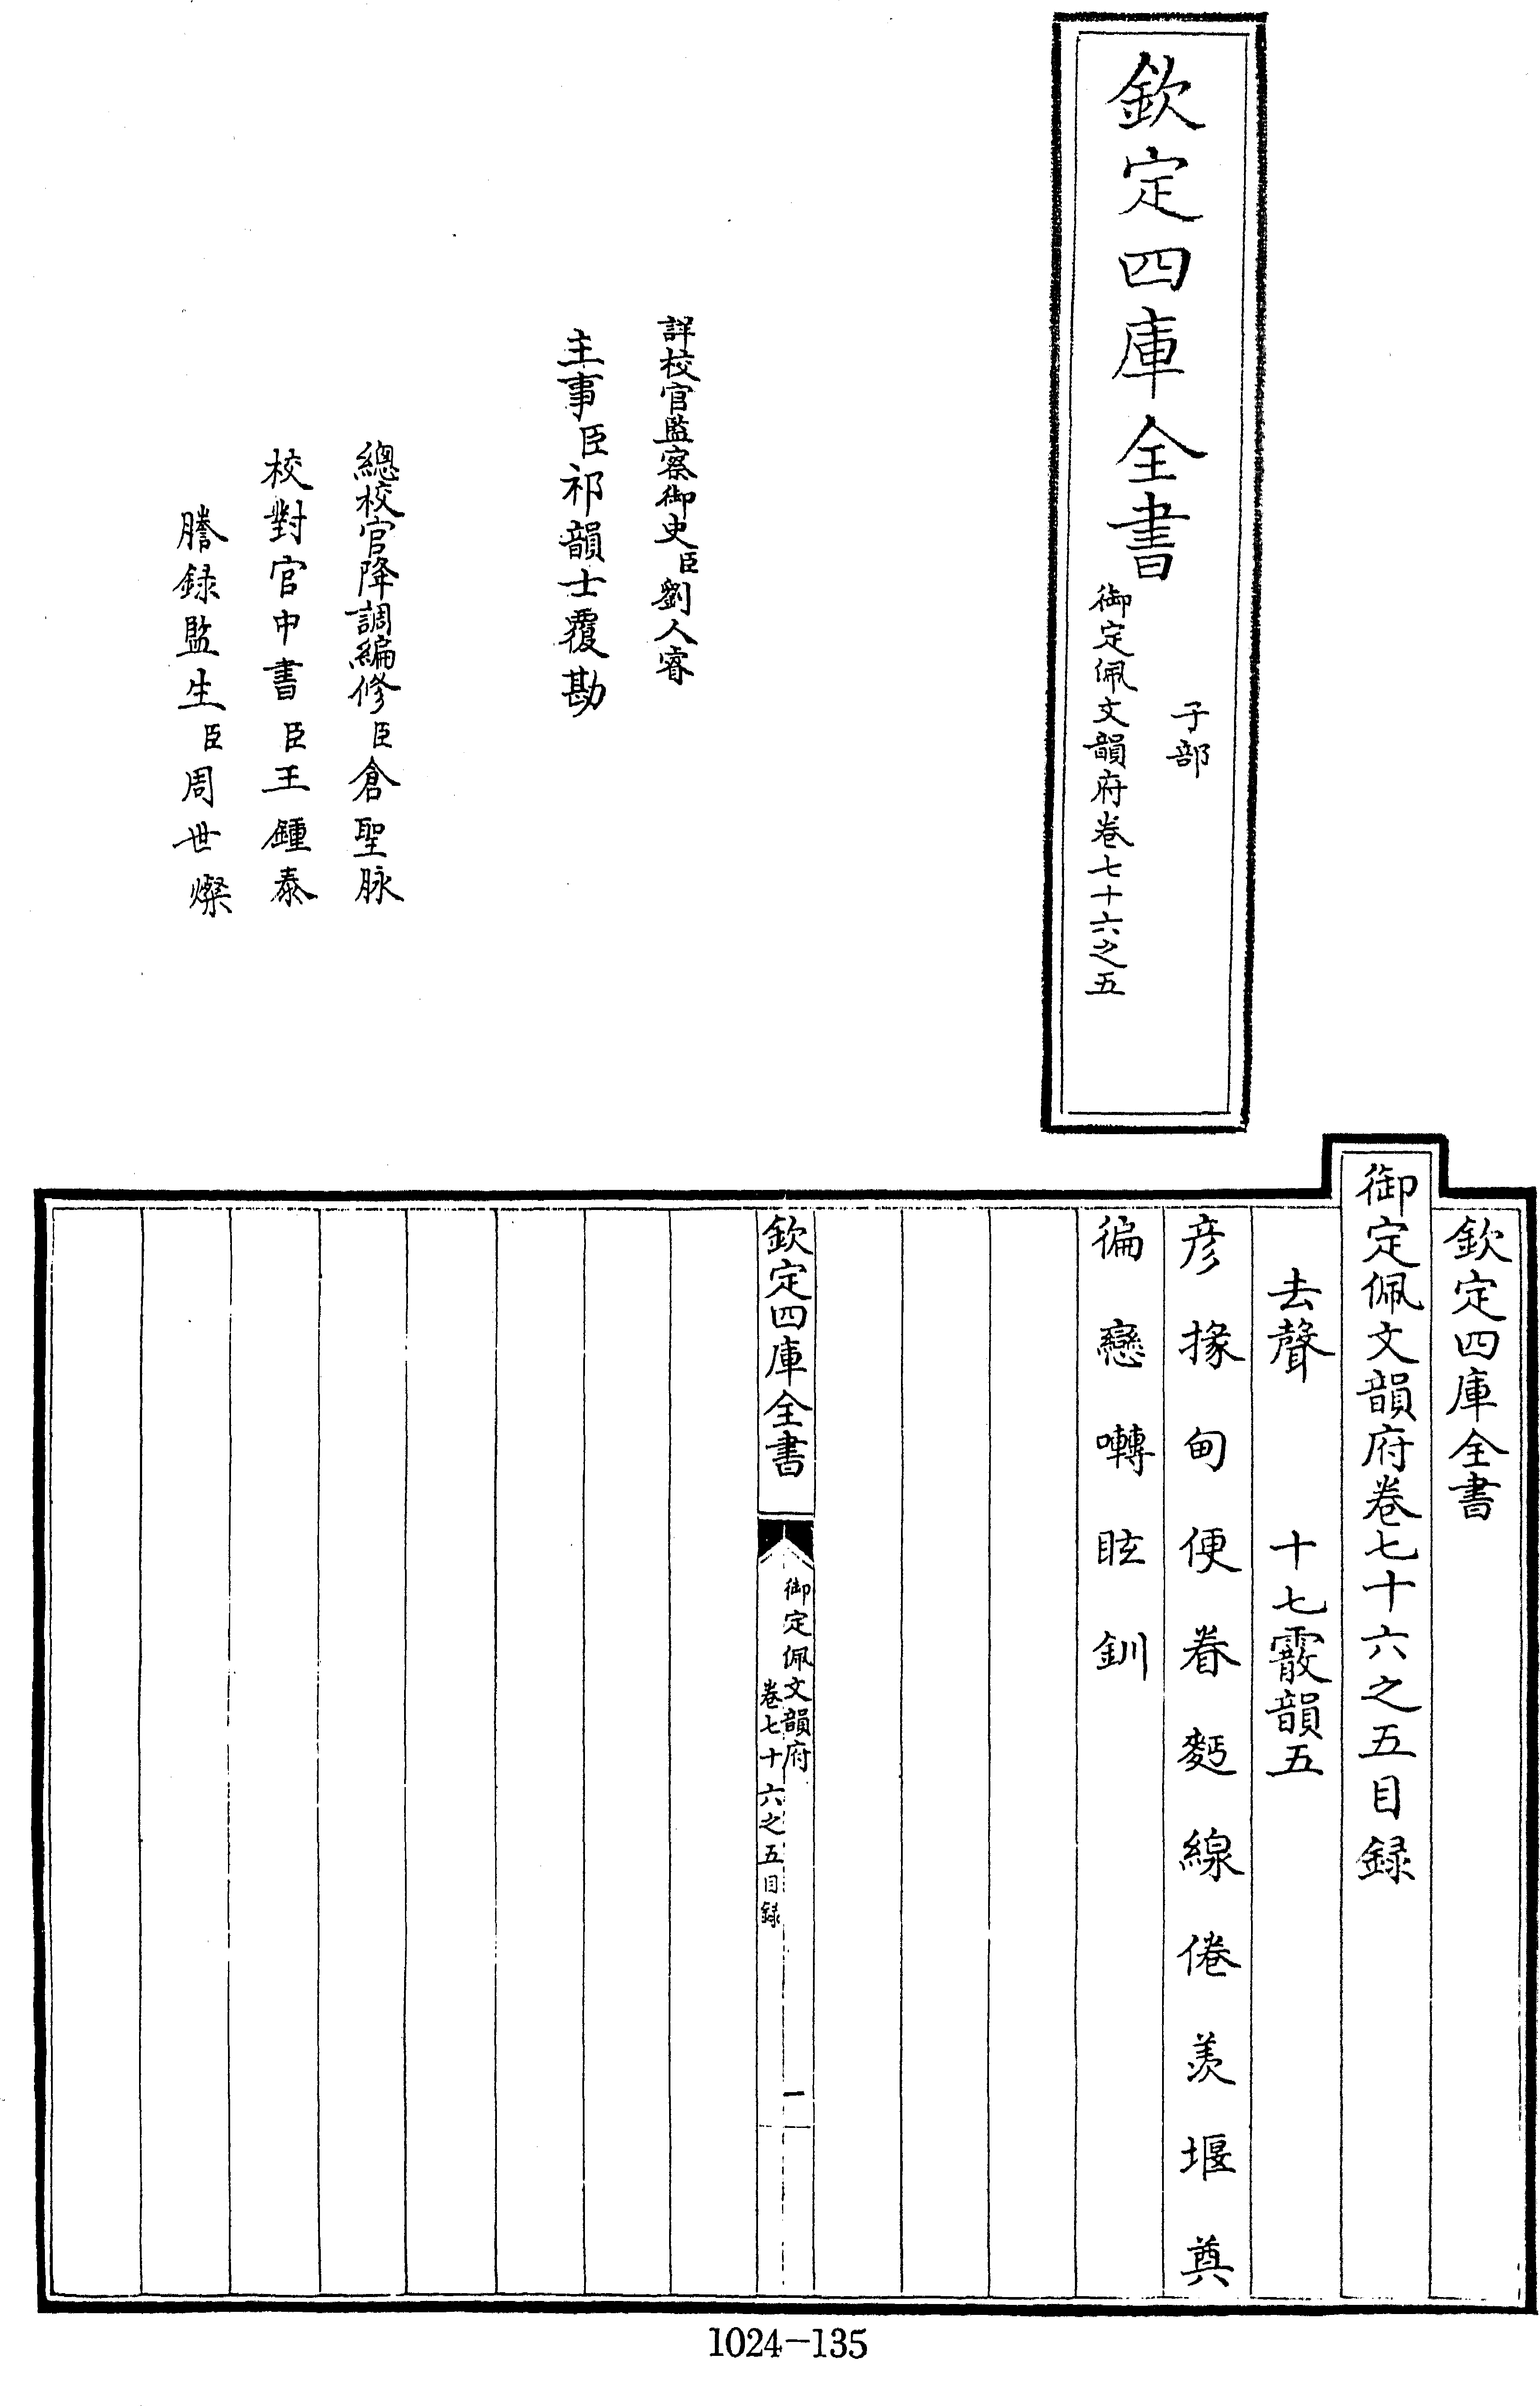 欽定四庫全書
子部
御定佩文韻府卷七十六之五
詳校官監察御史臣劉人睿
主事臣祁韻士覆勘
總校官降調編修臣倉聖脉
校對官中書臣王鍾泰
謄録監生臣周世燦
欽定四庫全書
御定佩文韻府卷七十六之五目録
去聲 十七霰韻五
彦 掾 甸 便 眷 麪 線 倦 羨 堰 奠
徧 戀 囀 眩 釧
欽定四庫全書
御定佩文韻府
卷七十六之五目録
一
1024-135